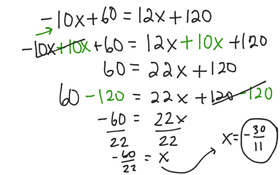 -10x+60 = 12x+120
-10x+10x+60 = 12x+10x+120
60 = 22x+120
60 -120 = 22x+120-120
-60/22 = 22x/22
-60/22 = x
x= -30/11